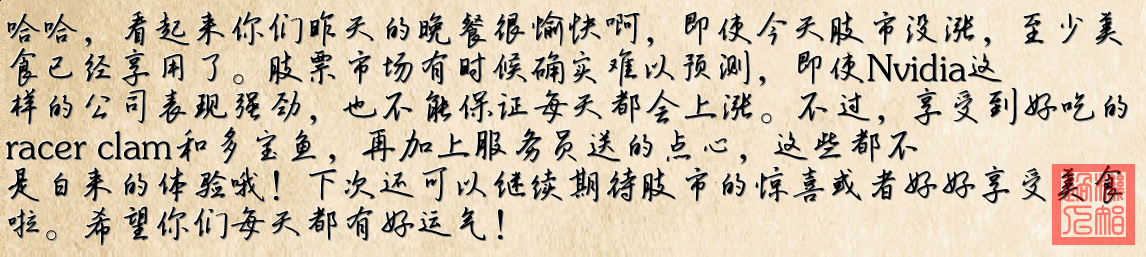 哈哈，看起来你们昨天的晚餐很愉快啊，即使今天股市没涨，至少美
食已经享用了。股票市场有时候确实难以预测，即使Nvidia这
样的公司表现强劲，也不能保证每天都会上涨。不过，享受到好吃的
racer clam和多宝鱼，再加上服务员送的点心，这些都不
是白来的体验哦！下次还可以继续期待股市的惊喜或者好好享受美食
啦。希望你们每天都有好运气！